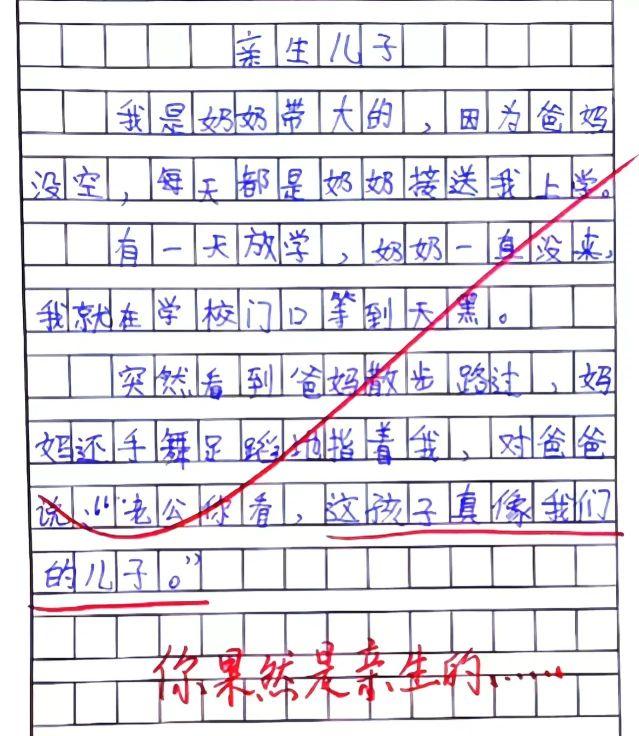 亲生儿子
我是奶奶带大的，因为爸妈
没空，每天都是奶奶接送我上学。
有一天放学，奶奶一直没来，
我就在学校门口等到天黑。
突然看到爸妈散步路过，妈
妈还手舞足蹈地指着我，对爸爸
说：“老公你看，这孩子真像我们
的儿子。”
你果然是亲生的......